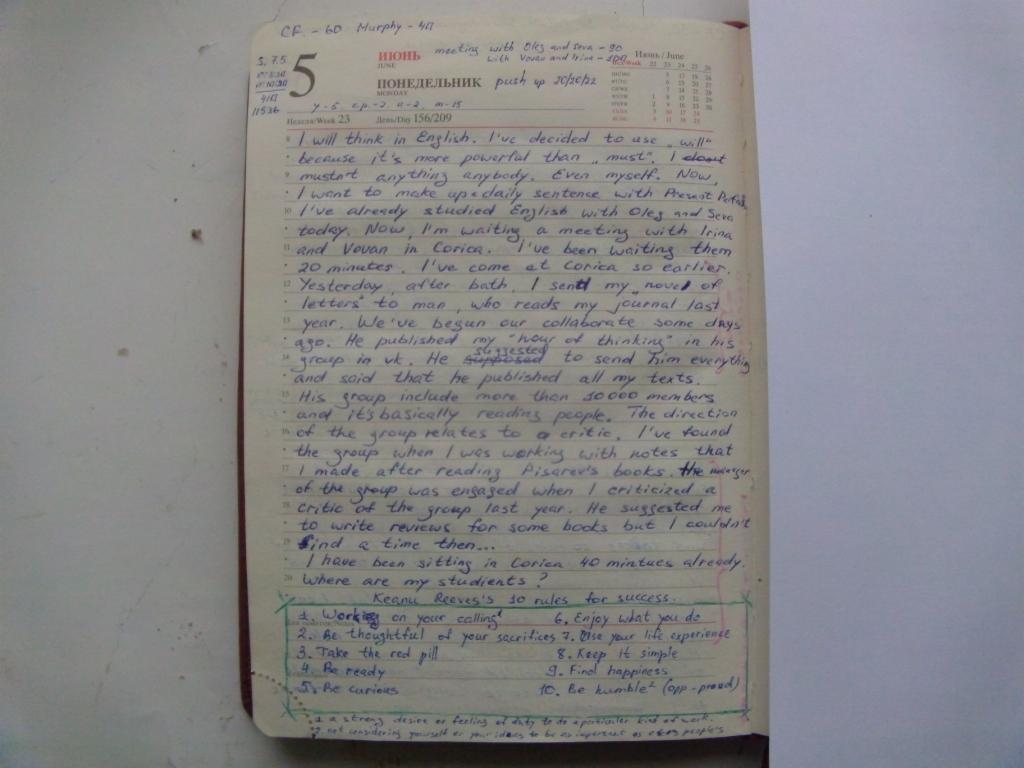 CF. - 60 Murphy - 4П
5
ИЮНЬ
JUNE
meeting with Oleg and Seva - 90
with Vovan and Irina -
Июнь / June
ПОНЕДЕЛЬНИК
MONDAY
push up 20/20/22
4П
11536
Неделя/Week 23 День/Day 156/209
I will think in English. I've decided to use „will"
because it's more powerful than „must". I
mustn't anything anybody. Even myself. Now,
I want to make up a daily sentence with Present Perfect.
I've already studied English with Oleg and Seva
today. Now, I'm waiting a meeting with Irina
and Vovan in Corica. I've been waiting them
20 minutes. I've come at Corica so earlier.
Yesterday, after bath, I sent my „novel of
letters" to man, who reads my journal last
year. We've begun our collaborate some days
ago. He published my "hour of thinking" in his
group in vk. He suggested to send him everything
and said that he published all my texts.
His group include more than 10000 members
and it's basically reading people. The direction
of the group relates to a critic. I've found
the group when I was working with notes that
I made after reading Pisarev's books. The manager
of the group was engaged when I criticized a
critic of the group last year. He suggested me
to write reviews for some books but I couldn't
find a time then...
I have been sitting in Corica 40 mintues already.
Where are my studients?
Keanu Reeves's 10 rules for success.
1. Working on your calling¹ 6. Enjoy what you do
2. Be thoughtful of your sacrifices 7. Use your life experience
3. Take the red pill 8. Keep It simple
4. Be ready 9. Find happiness
5. Be curious 10. Be humble² (opp - proud)
1 a strong desire or feeling of duty to do a particuler kind of work.
2 not considering yourself or your ideas to be as important as other people's